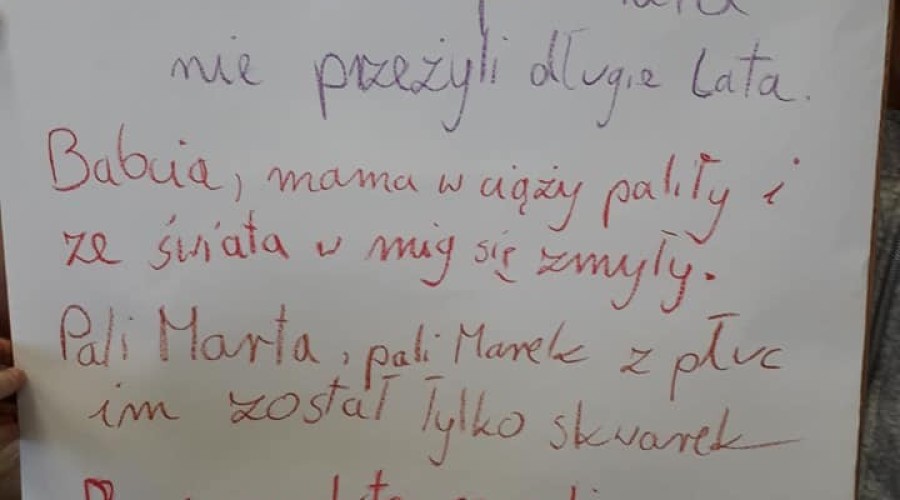 nie przeżyli długie lata.
Babcia, mama w ciąży paliły i
ze świata w mig się zmyły.
Pali Marta, pali Marek z płuc
im został tylko skwarek